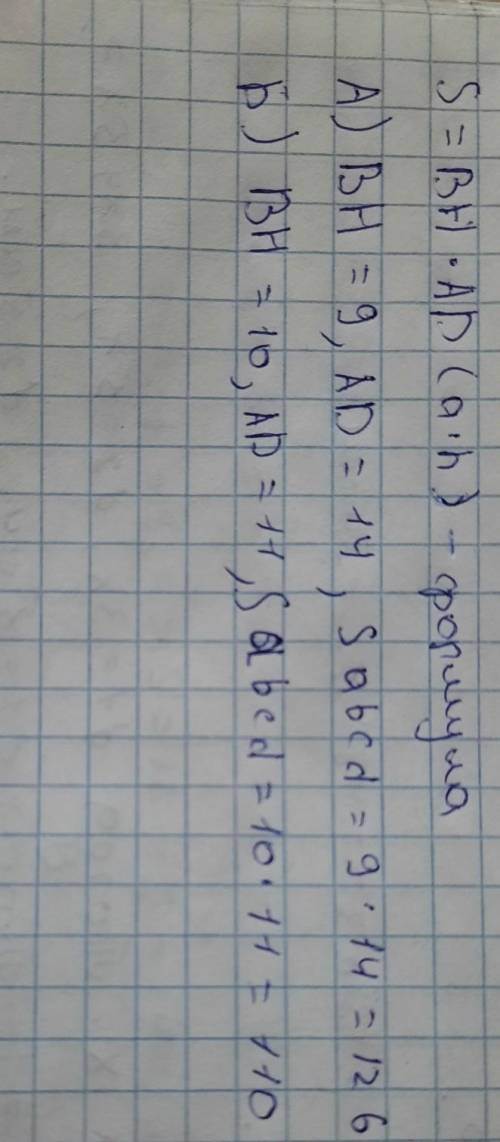 S = BH · AD (a · h) - формула
А) BH = 9, AD = 14, Sabcd = 9 · 14 = 126
Б) BH = 10, AD = 11, Sabcd = 10 · 11 = 110